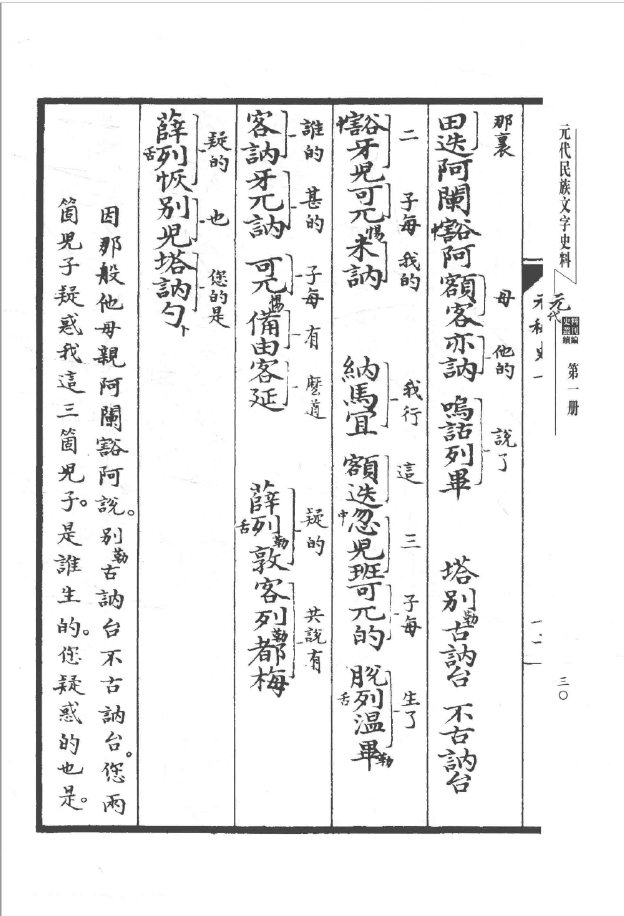 元代民族文字史料
第一册
三〇
那裏 母 他的 說了
田迭阿闌中豁阿額客亦訥嗚詁列畢 塔別勒古訥台 不古訥台
二 子每 我的 我行 這 三 子每 生了
中豁牙兒可兀惕米訥 納馬宜 額迭中忽兒班可兀的 脫舌列溫畢勒
誰的 甚的 子每 有 麼道 疑的 共說有
客訥牙兀訥 可兀惕備由客延 薛舌列勒敦客列勒都梅
疑的 也 您的是
薛舌列恢別兒塔訥勺卜
因那般他母親阿闌豁阿說。別勒古訥台不古訥台。您兩
箇兒子疑惑我這三箇兒子。是誰生的。您疑惑的也是。